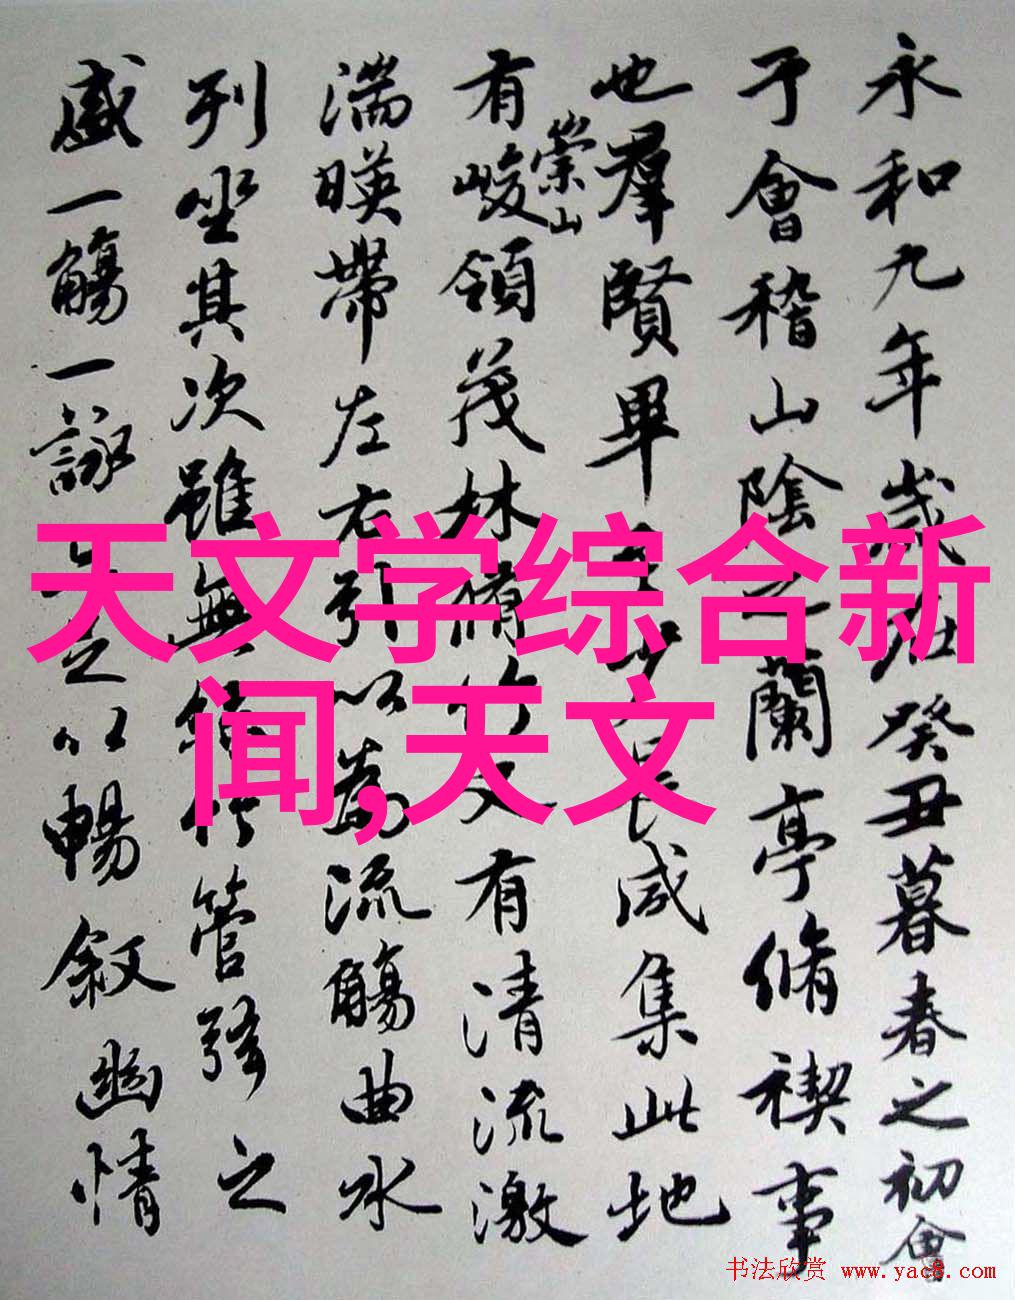 永和九年歲在癸丑暮春之初會
于會稽山陰之蘭亭脩禊事
也羣賢畢至少長咸集此地
有崇山峻領茂林脩竹又有清流激
湍暎帶左右引以為流觴曲水
列坐其次雖無絲竹管弦之
盛一觴一詠亦足以暢敘幽情
天文学综合新
闻,天文
书法欣赏 www.yac8.com